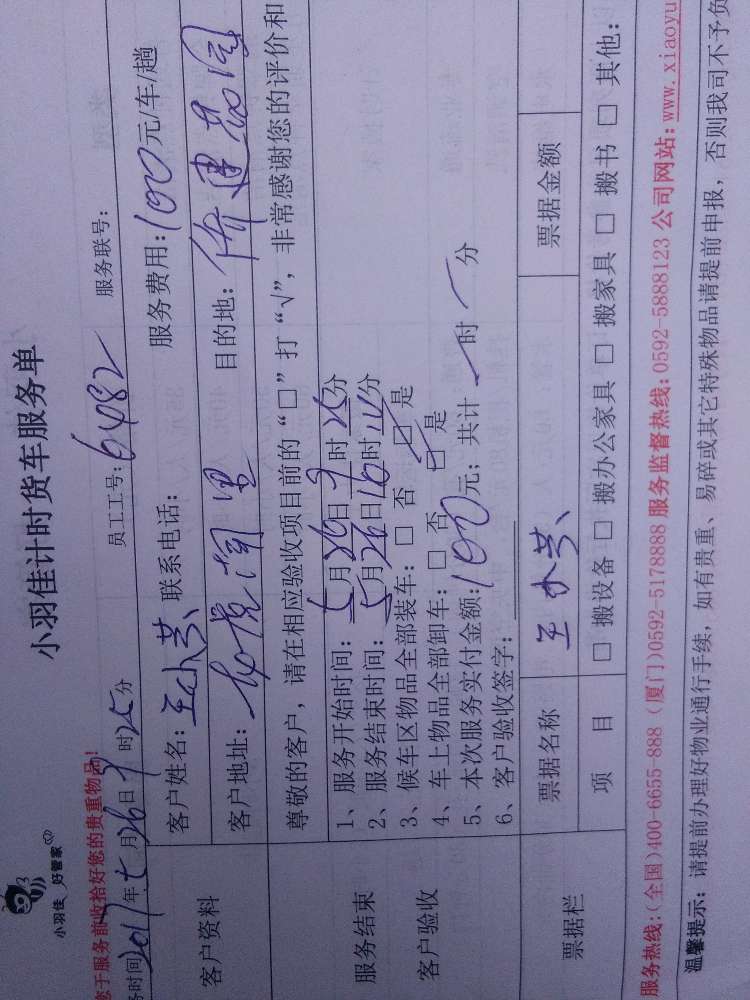 小羽佳 好管家
小羽佳计时货车服务单
您于服务前收拾好您的贵重物品!
务时间2017年5月26日9时25分 员工工号:6482 服务联号:
客户资料 客户姓名: 联系电话: 服务费用:100元/车/趟
客户地址: 目的地:
尊敬的客户,请在相应验收项目前的“□”打“√”,非常感谢您的评价和
服务结束
客户验收
1、服务开始时间:5月26日9时25分
2、服务结束时间:5月26日16时 分
3、候车区物品全部装车:□ 否 ☑ 是
4、车上物品全部卸车:□ 否 ☑ 是
5、本次服务实付金额:100元;共计 时 分
6、客户验收签字:
票据栏 票据名称 票据金额
项 目 □ 搬设备 □ 搬办公家具 □ 搬家具 □ 搬书 □ 其他:
服务热线:(全国)400-6655-888 (厦门)0592-5178888 服务监督热线:0592-5888123 公司网站:www.xiaoyu
温馨提示:请提前办理好物业通行手续,如有贵重、易碎或其它特殊物品请提前申报,否则我司不予负